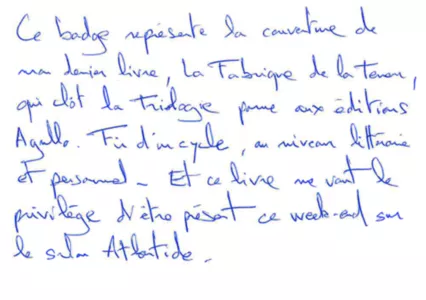 Ce badge représente la couverture de
mon dernier livre, La Fabrique de la terreur,
qui clôt la triologie parue aux éditions
Agullo. Fin d'un cycle, au niveau littéraire
et personnel. Et ce livre me vaut le
privilège d'être présent ce week-end sur
le salon Atlantide.